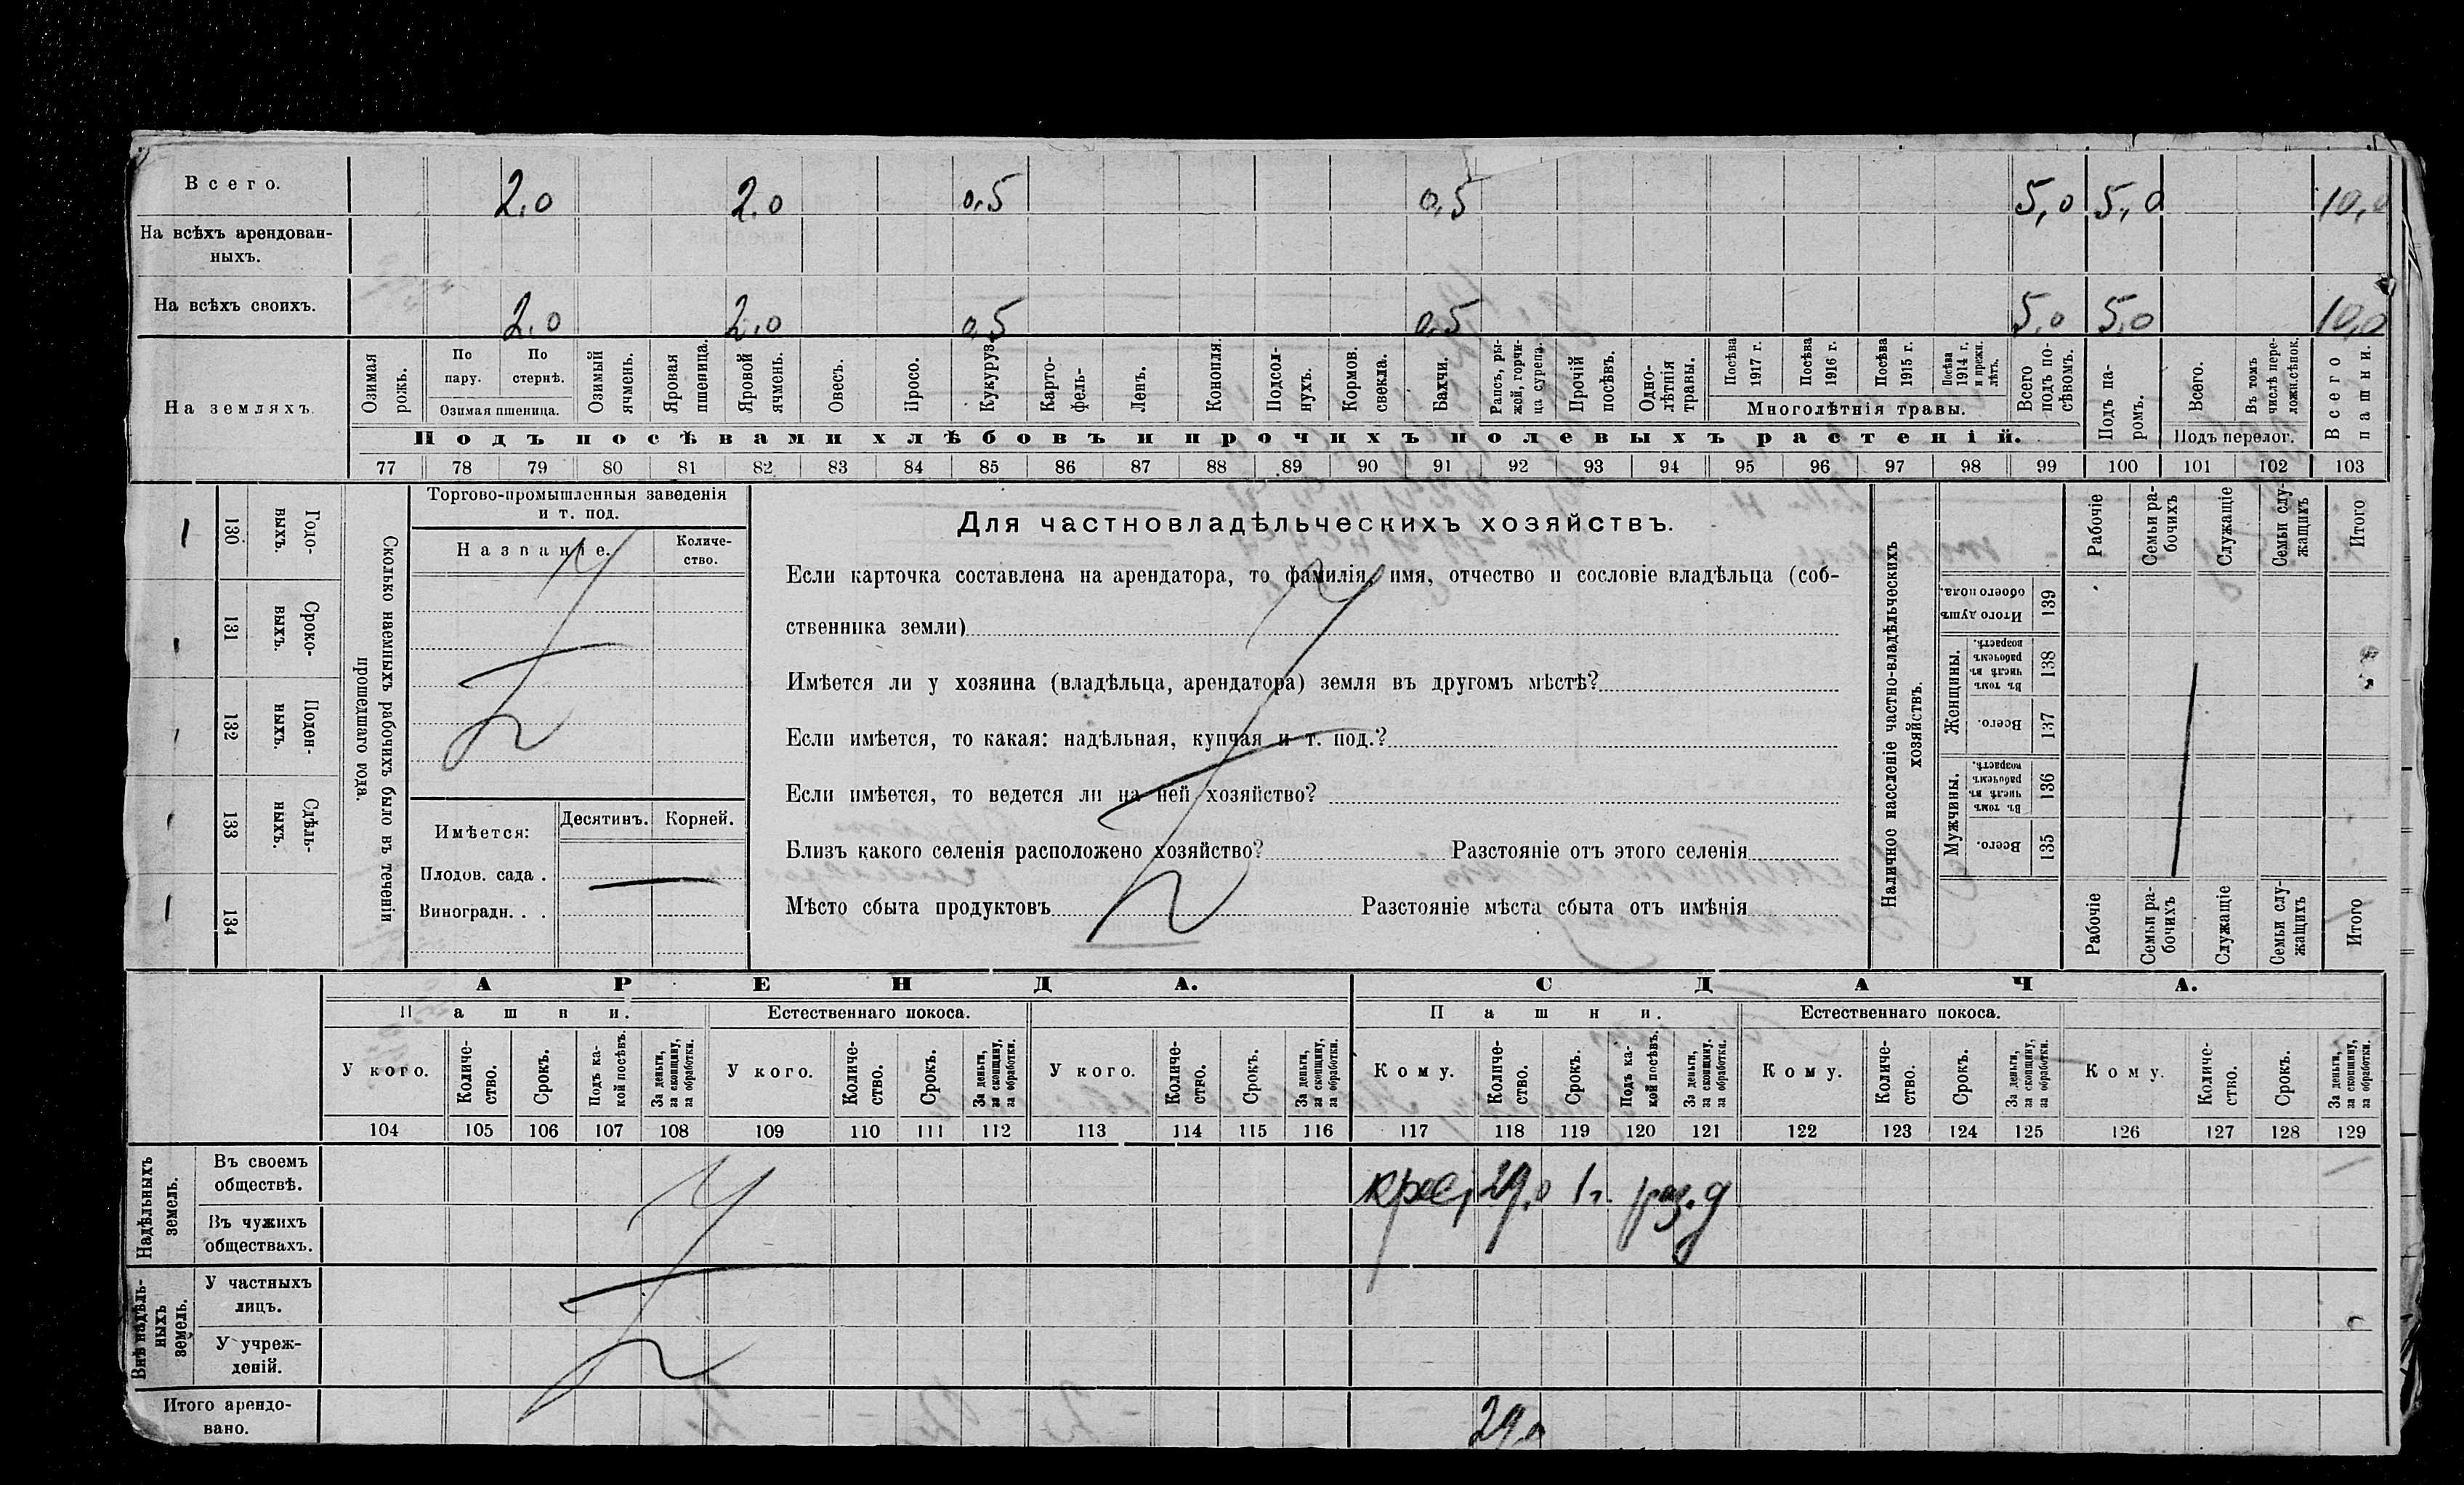 Всего. 2.0 2.0 0.5 0,5 5,0 5,0 10,0
На всѣхъ арендован-
ныхъ.
На всѣхъ своихъ. 2.0 2.0 0,5 0,5 5,0 5,0 10,0
На земляхъ.
Озимая рожь.
По пару.
По стернѣ.
Озимая пшеница.
Озимый ячмень.
Яровая пшеница.
Яровой ячмень.
Овесъ.
Просо.
Кукуруз
Карто-
фель-
Ленъ.
Конопля.
Подсол-
нухъ.
Кормов.
свекла.
Бахчи.
Рапсъ, ры-
жей, горчи-
ца сурепа.
Прочій
посѣвъ.
Одно-
лѣтнія
травы.
Посѣва
1917 г.
Посѣва
1916 г.
Посѣва
1915 г.
Посѣва
1914 г.
и прежн.
лѣтъ.
Многолѣтнія травы.
Всего
подъ по-
сѣвомъ.
Подъ па-
ромъ.
Всего.
Въ томъ
числѣ пере-
ложн.сѣнок.
Подъ перелог.
Всего
пашни.
Подъ посѣвами хлѣбовъ и прочихъ полевыхъ растеній.
77 78 79 80 81 82 83 84 85 86 87 88 89 90 91 92 93 94 95 96 97 98 99 100 101 102 103
130 Годо-
выхъ.
131 Сроко-
выхъ.
132 Поден-
ныхъ.
133 Сдѣль-
ныхъ.
134
Сколько наемныхъ рабочихъ было въ теченіи
прошедшаго года.
Торгово-промышленныя заведенія
и т. под.
Названіе.
Количе-
ство.
Имѣется:
Десятинъ.
Корней.
Плодов. сада .
Виноградн. . .
Для частновладѣльческихъ хозяйствъ.
Если карточка составлена на арендатора, то фамилія, имя, отчество и сословіе владѣльца (соб-
ственника земли)
Имѣется ли у хозяина (владѣльца, арендатора) земля въ другомъ мѣстѣ?
Если имѣется, то какая: надѣльная, купчая и т. под.?
Если имѣется, то ведется ли на ней хозяйство?
Близъ какого селенія расположено хозяйство? Разстояніе отъ этого селенія
Мѣсто сбыта продуктовъ Разстояніе мѣста сбыта отъ имѣнія
Наличное населеніе частно-владѣльческихъ
хозяйствъ.
Рабочіе
Семьи ра-
бочихъ
Служащіе
Семьи слу-
жащихъ
Итого
Итого душъ
обоего пола.
139
Женщины.
Въ томъ
числѣ въ
рабочемъ
возрастѣ.
138
Всего.
137
Мужчины.
Въ томъ
числѣ въ
рабочемъ
возрастѣ.
136
Всего.
135
Рабочіе
Семьи ра-
бочихъ
Служащіе
Семьи слу-
жащихъ
Итого
АРЕНДА. СДАЧА.
Пашни. Естественнаго покоса. Пашни. Естественнаго покоса.
У кого.
Количе-
ство.
Срокъ.
Подъ ка-
кой посѣвъ.
За деньги,
за скопщину,
за обработки.
У кого.
Количе-
ство.
Срокъ.
За деньги,
за скопщину,
за обработки.
У кого.
Количе-
ство.
Срокъ.
За деньги,
за скопщину,
за обработки.
Кому.
Количе-
ство.
Срокъ.
Подъ ка-
кой посѣвъ.
За деньги,
за скопщину.
за обработки.
Кому.
Количе-
ство.
Срокъ.
За деньги,
за скопщину,
за обработки.
Кому.
Количе-
ство.
Срокъ.
За деньги,
за скопщину,
за обработки.
104 105 106 107 108 109 110 111 112 113 114 115 116 117 118 119 120 121 122 123 124 125 126 127 128 129
Надѣльныхъ
земель.
Въ своемъ
обществѣ.
29,0 1 г. раз. д
Въ чужихъ
обществахъ.
Внѣ надѣль-
ныхъ
земель.
У частныхъ
лицъ.
У учреж-
деній.
Итого арендо-
вано.
29,0